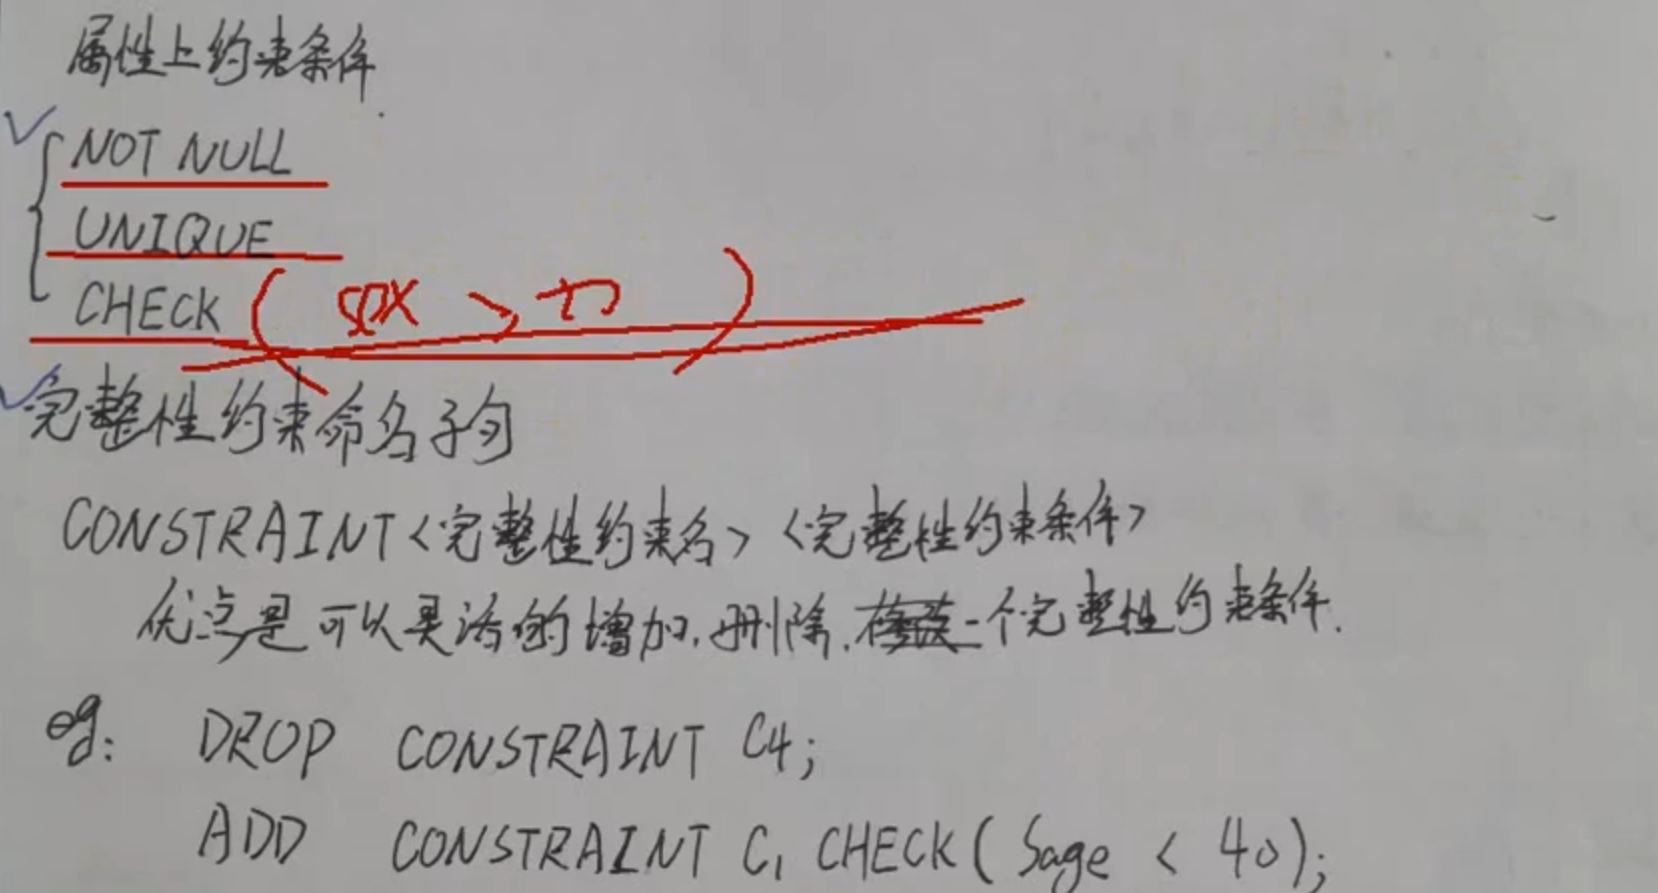 属性上约束条件
NOT NULL
UNIQUE
CHECK
完整性约束命名子句
CONSTRAINT<完整性约束名> <完整性约束条件>
优点是可以灵活的增加.删除.一个完整性约束条件.
eg: DROP CONSTRAINT C4;
ADD CONSTRAINT C1 CHECK( Sage < 40);